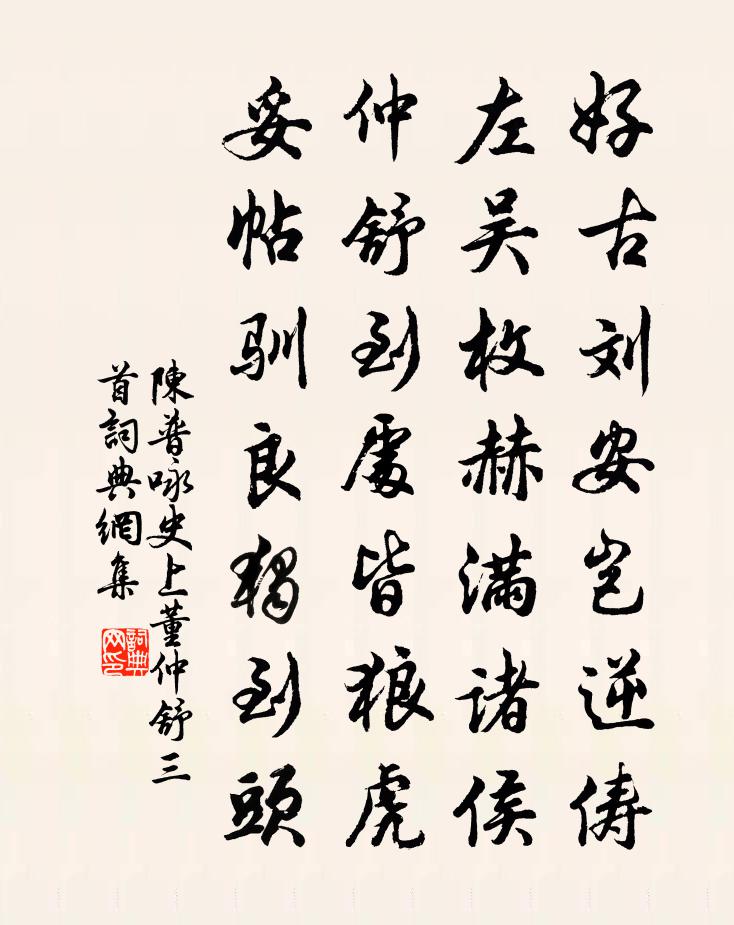 好古刘安岂逆俦
左吴枚赫满诸侯
仲舒到處皆狼虎
妥帖驯良独到頭
陳普咏史上董仲舒三
首詞典網集
詞典网印